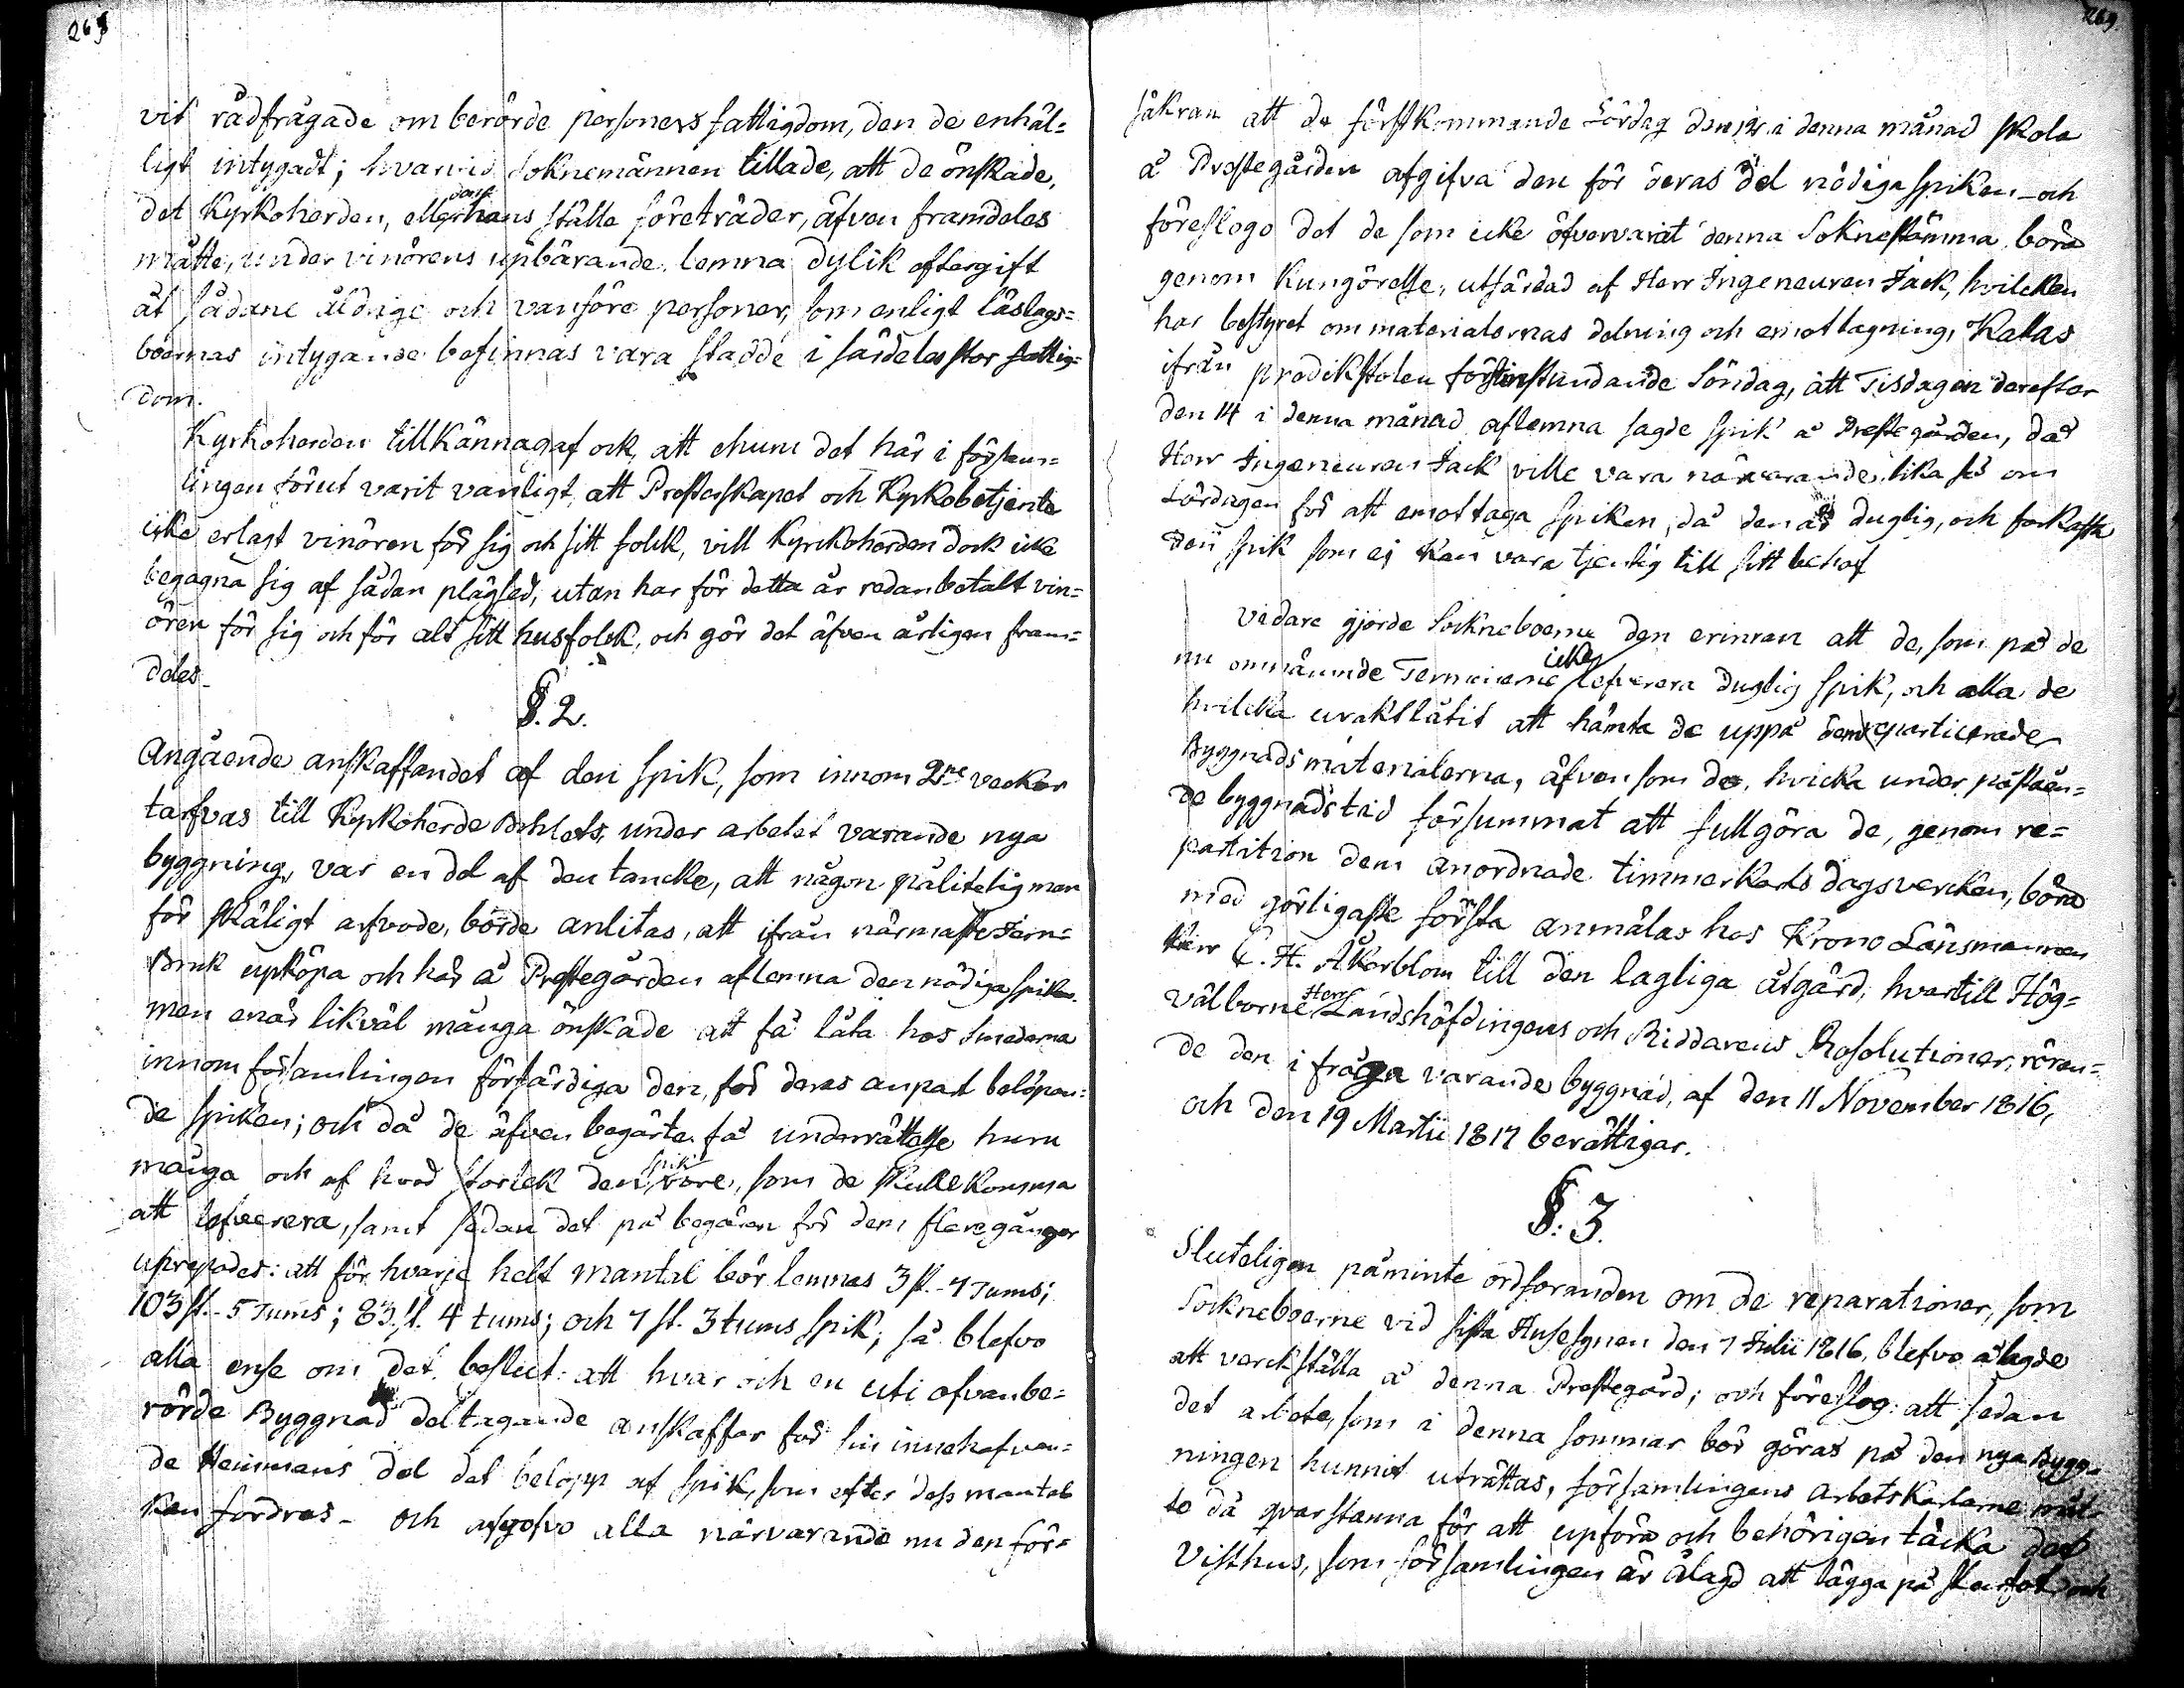 268
vit rådfrågade om berörde personers fattigdom, den de enhäl=
ligt intygadt; hvarvid Soknemännen tillade, att de önskade,
det Kyrkoherden, eller den hans ställe företräder, äfven framdeles
måtte, under vinörens upbärande, lemna dylik eftergift
åt sådane åldrige och vanföre personer, som enligt läslags=
boernas intygande befinnas vara stadde i särdeles stor fattig=
dom.
Kyrkoherden tillkännagaf ock, att ehuru det här i försam=
lingen förut varit vanligt, att Presterskapet och Kyrkobetjente
icke erlagt vinören för sig och sitt folck, vill Kyrckoherden dock icke
begagna sig af sådan plägsed, utan har för detta år redan betalt vin=
ören för sig och för alt sitt husfolck, och gör det äfven årligen fram=
deles_
§. 2.
Angående anskaffandet af den spik, som innom 2ne veckor
tarfvas till Kyrkoherde Bohlets, under arbetet varande nya
byggning, var en del af den tancke, att någon pålitelig man
för skäligt arfvode, borde anlitas, att ifrån närmaste Jern=
Bruk upköpa och här å Prestegården aflemna den nödiga spiken.
men enär likväl många önskade att få låta hos Smederna
innom församlingen förfärdiga den, för deras anpart belöpan=
de spiken; och då de äfven begärte få underrättelse huru
många och af hvad storlek den spik vore, som de skulle komma
att lefverera, samt sedan det på begäran för dem flere gånger
uprepades: att för hvarje helt mantal bör lemnas 3 st. 7 Tums;
103 st. 5 Tums; 83. st. 4 tums; och 7 st. 3 tums spik; så blefvo
alla ense om det beslut: att hvar och en uti ofvanbe=
rörde Byggnad deltagande anskaffar för sin innehafvan=
de Hemmans del det belopp af spik, som efter dess mantal
kan fordras_ och afgofvo alla närvarande nu den för=
269.
säkran att de förstkommande Lördag den 12 i denna månad skola
å Prostegården afgifva den för deras del nödiga spiken_ och
föreslogo det de som icke öfvervarit denna Soknestämma, böra
genom Kungörelse, utfärdad af Herr Ingeneuren Jack, hvilcken
har bestyret om materialernas delning och emottagning, Kallas
ifrån predikstolen förstinstundande Söndag, att Tisdagen derefter
den 14 i denna månad aflemna sagde spik å Prestegården, då
Herr Ingeneuren Jack ville vara närvarande, lika så om
Lördagen för att emottaga spiken, då den är duglig, och förkasta
den spik som ej kan vara tjenlig till sitt behof
Vidare gjorde Sockneboerne den erinran att de, som på de
nu omnämnde Terminerne icke lefverera duglig spik, och alla de
hvilcka uraktlåtit att hämta de uppå dem reparticerade
Byggnads materialerna, äfven som de, hvicka under påstäen=
de byggnadstid försummat att fullgöra de, genom re=
partition dem anordnade timmerkarls dagsvercken, böra
med görligaste första anmälas hos Krono Länsmannen
Herr C. H. Åkerblom till den lagliga åtgärd, hvartill Hög=
välborne Herr Landshöfdingens och Riddarens Resolutioner, rören=
de den i fråga varande byggnad, af den 11 November 1816,
och den 19 Martii 1817 berättigar.
§. 3.
Sluteligen påminte ordföranden om de reparationer, som
Sockneboerne vid sista Husesynen den 7 Julii 1816, blefvo ålagde
att verckställa å denna Prestegård; och föreslog: att sedan
det arbete, som i denna sommar bör göras på den nya Bygg=
ningen hunnit uträttas, församlingens arbetskarlarne måt=
te då qvarstanna för att upföra och behörigen täcka det
Visthus, som församlingen är ålagd att lägga på stenfot och